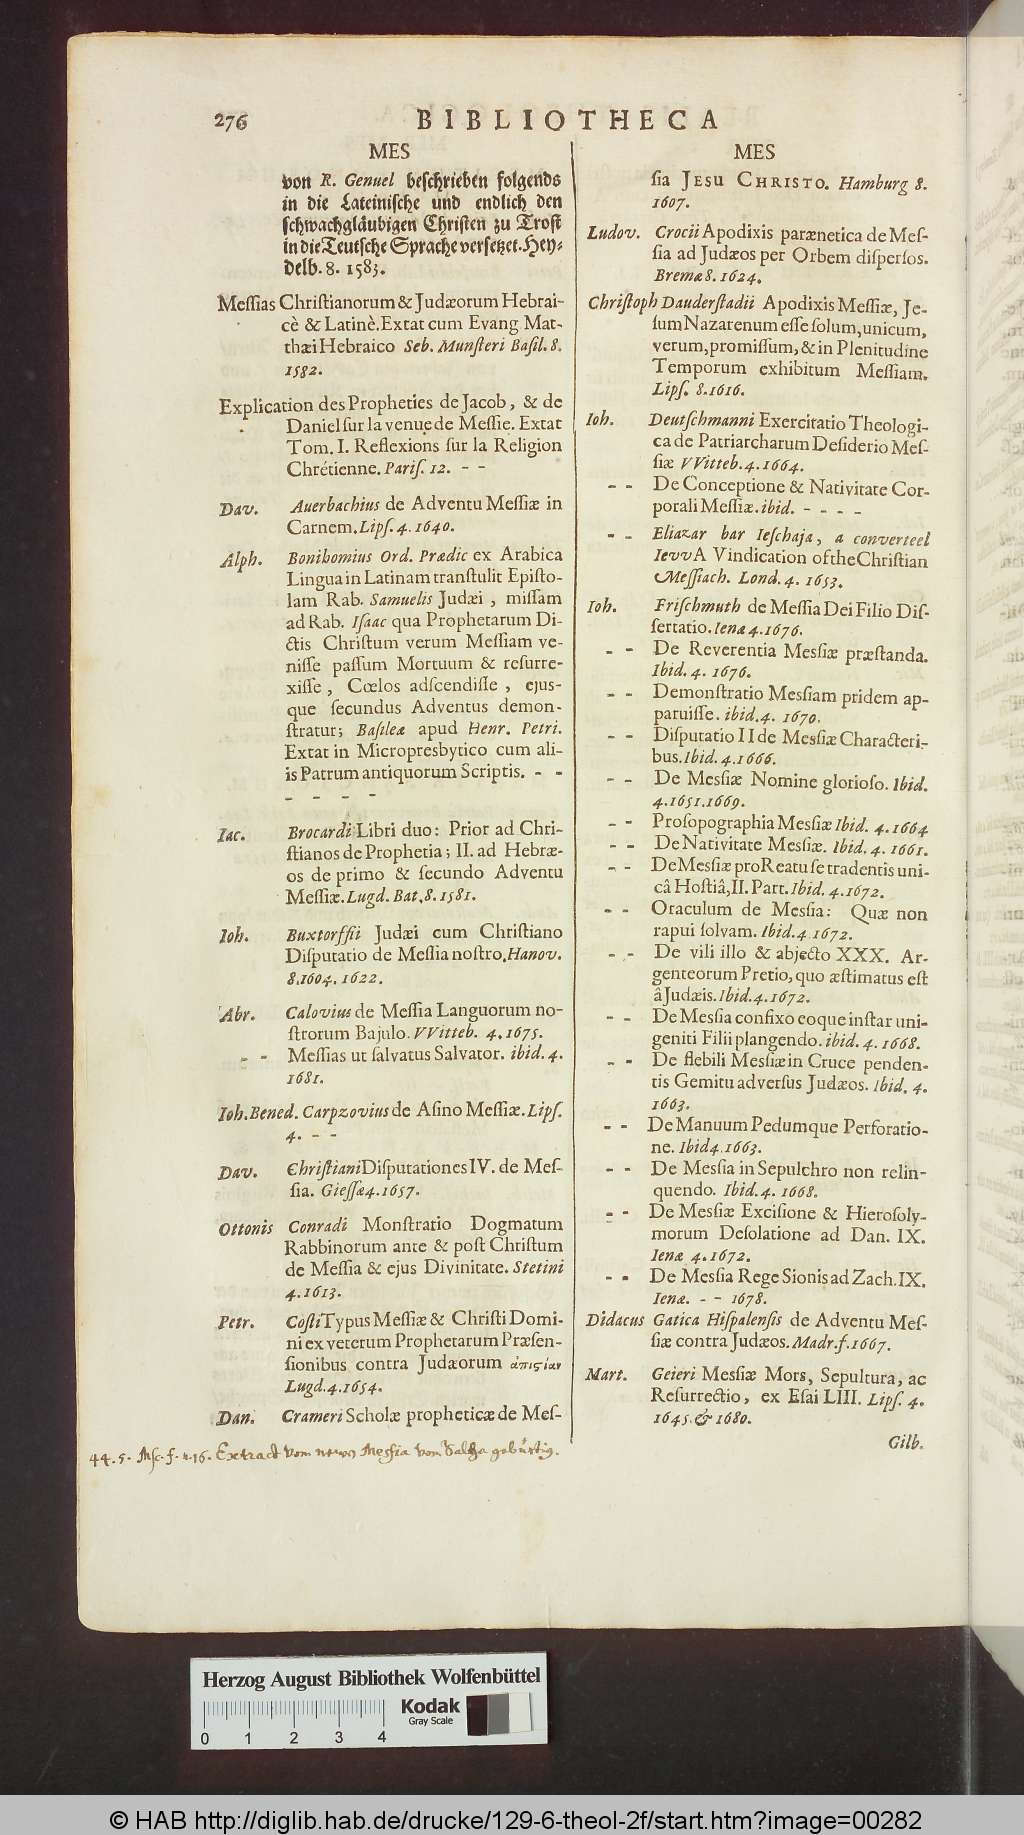 276
BIBLIOTHECA
MES
von R. Genuel beſchrieben folgends
in die Lateiniſche und endlich den
ſchwachgläubigen Chriſten zu Troſt
in die Teutſche Sprache verſetzet. Hey-
delb. 8. 1583.
Meſſias Chriſtianorum & Judæorum Hebrai-
cè & Latinè. Extat cum Evang Mat-
thæi Hebraico Seb. Munſteri Baſil. 8.
1582.
Explication des Propheties de Jacob, & de
Daniel ſur la venue de Meſſie. Extat
Tom. I. Reflexions ſur la Religion
Chrétienne. Pariſ. 12. - -
Dav. Auerbachius de Adventu Meſſiæ in
Carnem. Lipſ. 4. 1640.
Alph. Bonihomius Ord. Prædic ex Arabica
Lingua in Latinam tranſtulit Epiſto-
lam Rab. Samuelis Judæi, miſſam
ad Rab. Iſaac qua Prophetarum Di-
ctis Chriſtum verum Meſſiam ve-
niſſe paſſum Mortuum & reſurre-
xiſſe, Cœlos adſcendiſſe, ejus-
que ſecundus Adventus demon-
ſtratur; Baſileæ apud Henr. Petri.
Extat in Micropresbytico cum ali-
is Patrum antiquorum Scriptis. - -
- - - -
Iac. Brocardi Libri duo: Prior ad Chri-
ſtianos de Prophetia; II. ad Hebræ-
os de primo & ſecundo Adventu
Meſſiæ. Lugd. Bat. 8. 1581.
Ioh. Buxtorffii Judæi cum Chriſtiano
Diſputatio de Meſſia noſtro. Hanov.
8. 1604. 1622.
Abr. Calovius de Meſſia Languorum no-
ſtrorum Bajulo. VVitteb. 4. 1675.
- - Meſſias ut ſalvatus Salvator. ibid. 4.
1681.
Ioh. Bened. Carpzovius de Aſino Meſſiæ. Lipſ.
4. - -
Dav. Chriſtiani Diſputationes IV. de Meſ-
ſia. Gieſſæ 4. 1657.
Ottonis Conradi Monſtratio Dogmatum
Rabbinorum ante & poſt Chriſtum
de Meſſia & ejus Divinitate. Stetini
4. 1613.
Petr. Coſti Typus Meſſiæ & Chriſti Domi-
ni ex veterum Prophetarum Præſen-
ſionibus contra Judæorum ἀπιςίαν
Lugd. 4. 1654.
Dan. Crameri Scholæ propheticæ de Meſ-
44. 5. Msc. f. n. 16. Extract vom newen Messia von Saltza gebürtig.
MES
ſia JESU CHRISTO. Hamburg 8.
1607.
Ludov. Crocii Apodixis parænetica de Meſ-
ſia ad Judæos per Orbem diſperſos.
Bremæ 8. 1624.
Chriſtoph Dauderſtadii Apodixis Meſſiæ, Je-
ſum Nazarenum eſſe ſolum, unicum,
verum, promiſſum, & in Plenitudine
Temporum exhibitum Meſſiam.
Lipſ. 8. 1616.
Ioh. Deutſchmanni Exercitatio Theologi-
ca de Patriarcharum Deſiderio Meſ-
ſiæ VVitteb. 4. 1664.
- - De Conceptione & Nativitate Cor-
porali Meſſiæ. ibid. - - - -
- - Eliazar bar Ieſchaja, a converteel
IevvA Vindication of the Chriſtian
Meſſiach. Lond. 4. 1653.
Ioh. Friſchmuth de Meſſia Dei Filio Diſ-
ſertatio. Ienæ 4. 1676.
- - De Reverentia Meſſiæ præſtanda.
Ibid. 4. 1676.
- - Demonſtratio Messiam pridem ap-
paruiſſe. ibid. 4. 1670.
- - Diſputatio II de Messiæ Characteri-
bus. Ibid. 4. 1666.
- - De Messiæ Nomine glorioſo. Ibid.
4. 1651. 1669.
- - Proſopographia Messiæ Ibid. 4. 1664
- - De Nativitate Messiæ. Ibid. 4. 1661.
- - De Messiæ pro Reatu ſe tradentis uni-
câ Hoſtiâ, II. Part. Ibid. 4. 1672.
- - Oraculum de Messia: Quæ non
rapui ſolvam. Ibid. 4 1672.
- - De vili illo & abjecto XXX. Ar-
genteorum Pretio, quo æſtimatus eſt
â Judæis. Ibid. 4. 1672.
- - De Messia confixo eoque inſtar uni-
geniti Filii plangendo. ibid. 4. 1668.
- - De flebili Messiæ in Cruce penden-
tis Gemitu adverſus Judæos. Ibid. 4.
1663.
- - De Manuum Pedumque Perforatio-
ne. Ibid 4. 1663.
- - De Messia in Sepulchro non relin-
quendo. Ibid. 4. 1668.
- - De Messiæ Exciſione & Hieroſoly-
morum Deſolatione ad Dan. IX.
Ienæ 4. 1672.
- - De Messia Rege Sionis ad Zach. IX.
Ienæ. - - 1678.
Didacus Gatica Hiſpalenſis de Adventu Meſ-
ſiæ contra Judæos. Madr. f. 1667.
Mart. Geieri Messiæ Mors, Sepultura, ac
Reſurrectio, ex Eſai LIII. Lipſ. 4.
1645. & 1680.
Gilb.
Herzog August Bibliothek Wolfenbüttel
Kodak
Gray Scale
0 1 2 3 4
© HAB http://diglib.hab.de/drucke/129-6-theol-2f/start.htm?image=00282